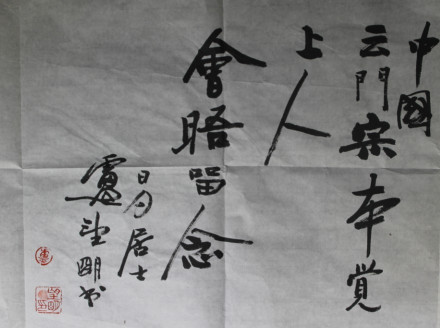 中國
云門宗本覚
上人
會晤留念
日月居士
盧望明书